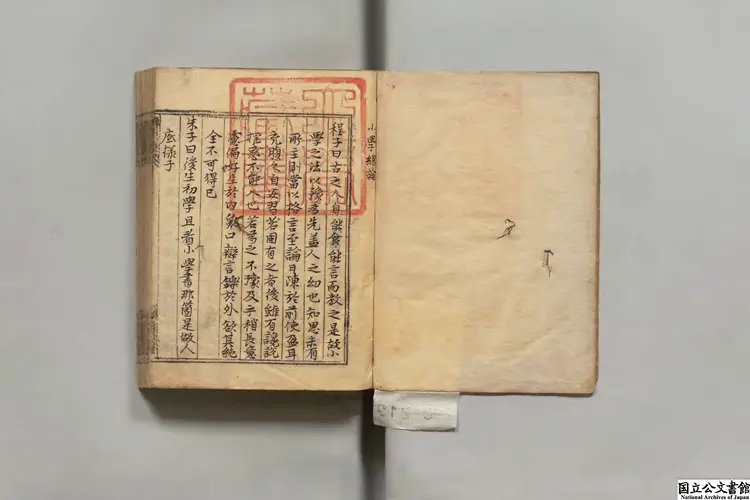 小學總論
程子曰古之人自能食能言而教之是故小
學之法以豫為先盖人之幼也知思未有
所主則當以格言至論日陳於前使盈耳
充腹久自安習若固有之者後雖有讒說
搖惑不能入也若為之不豫及乎稍長意
慮偏好生於內衆口辯言鑠於外欲其純
全不可得已
朱子曰後生初學且看小學書那箇是做人
底樣子
国立公文書館
National Archives of Japan